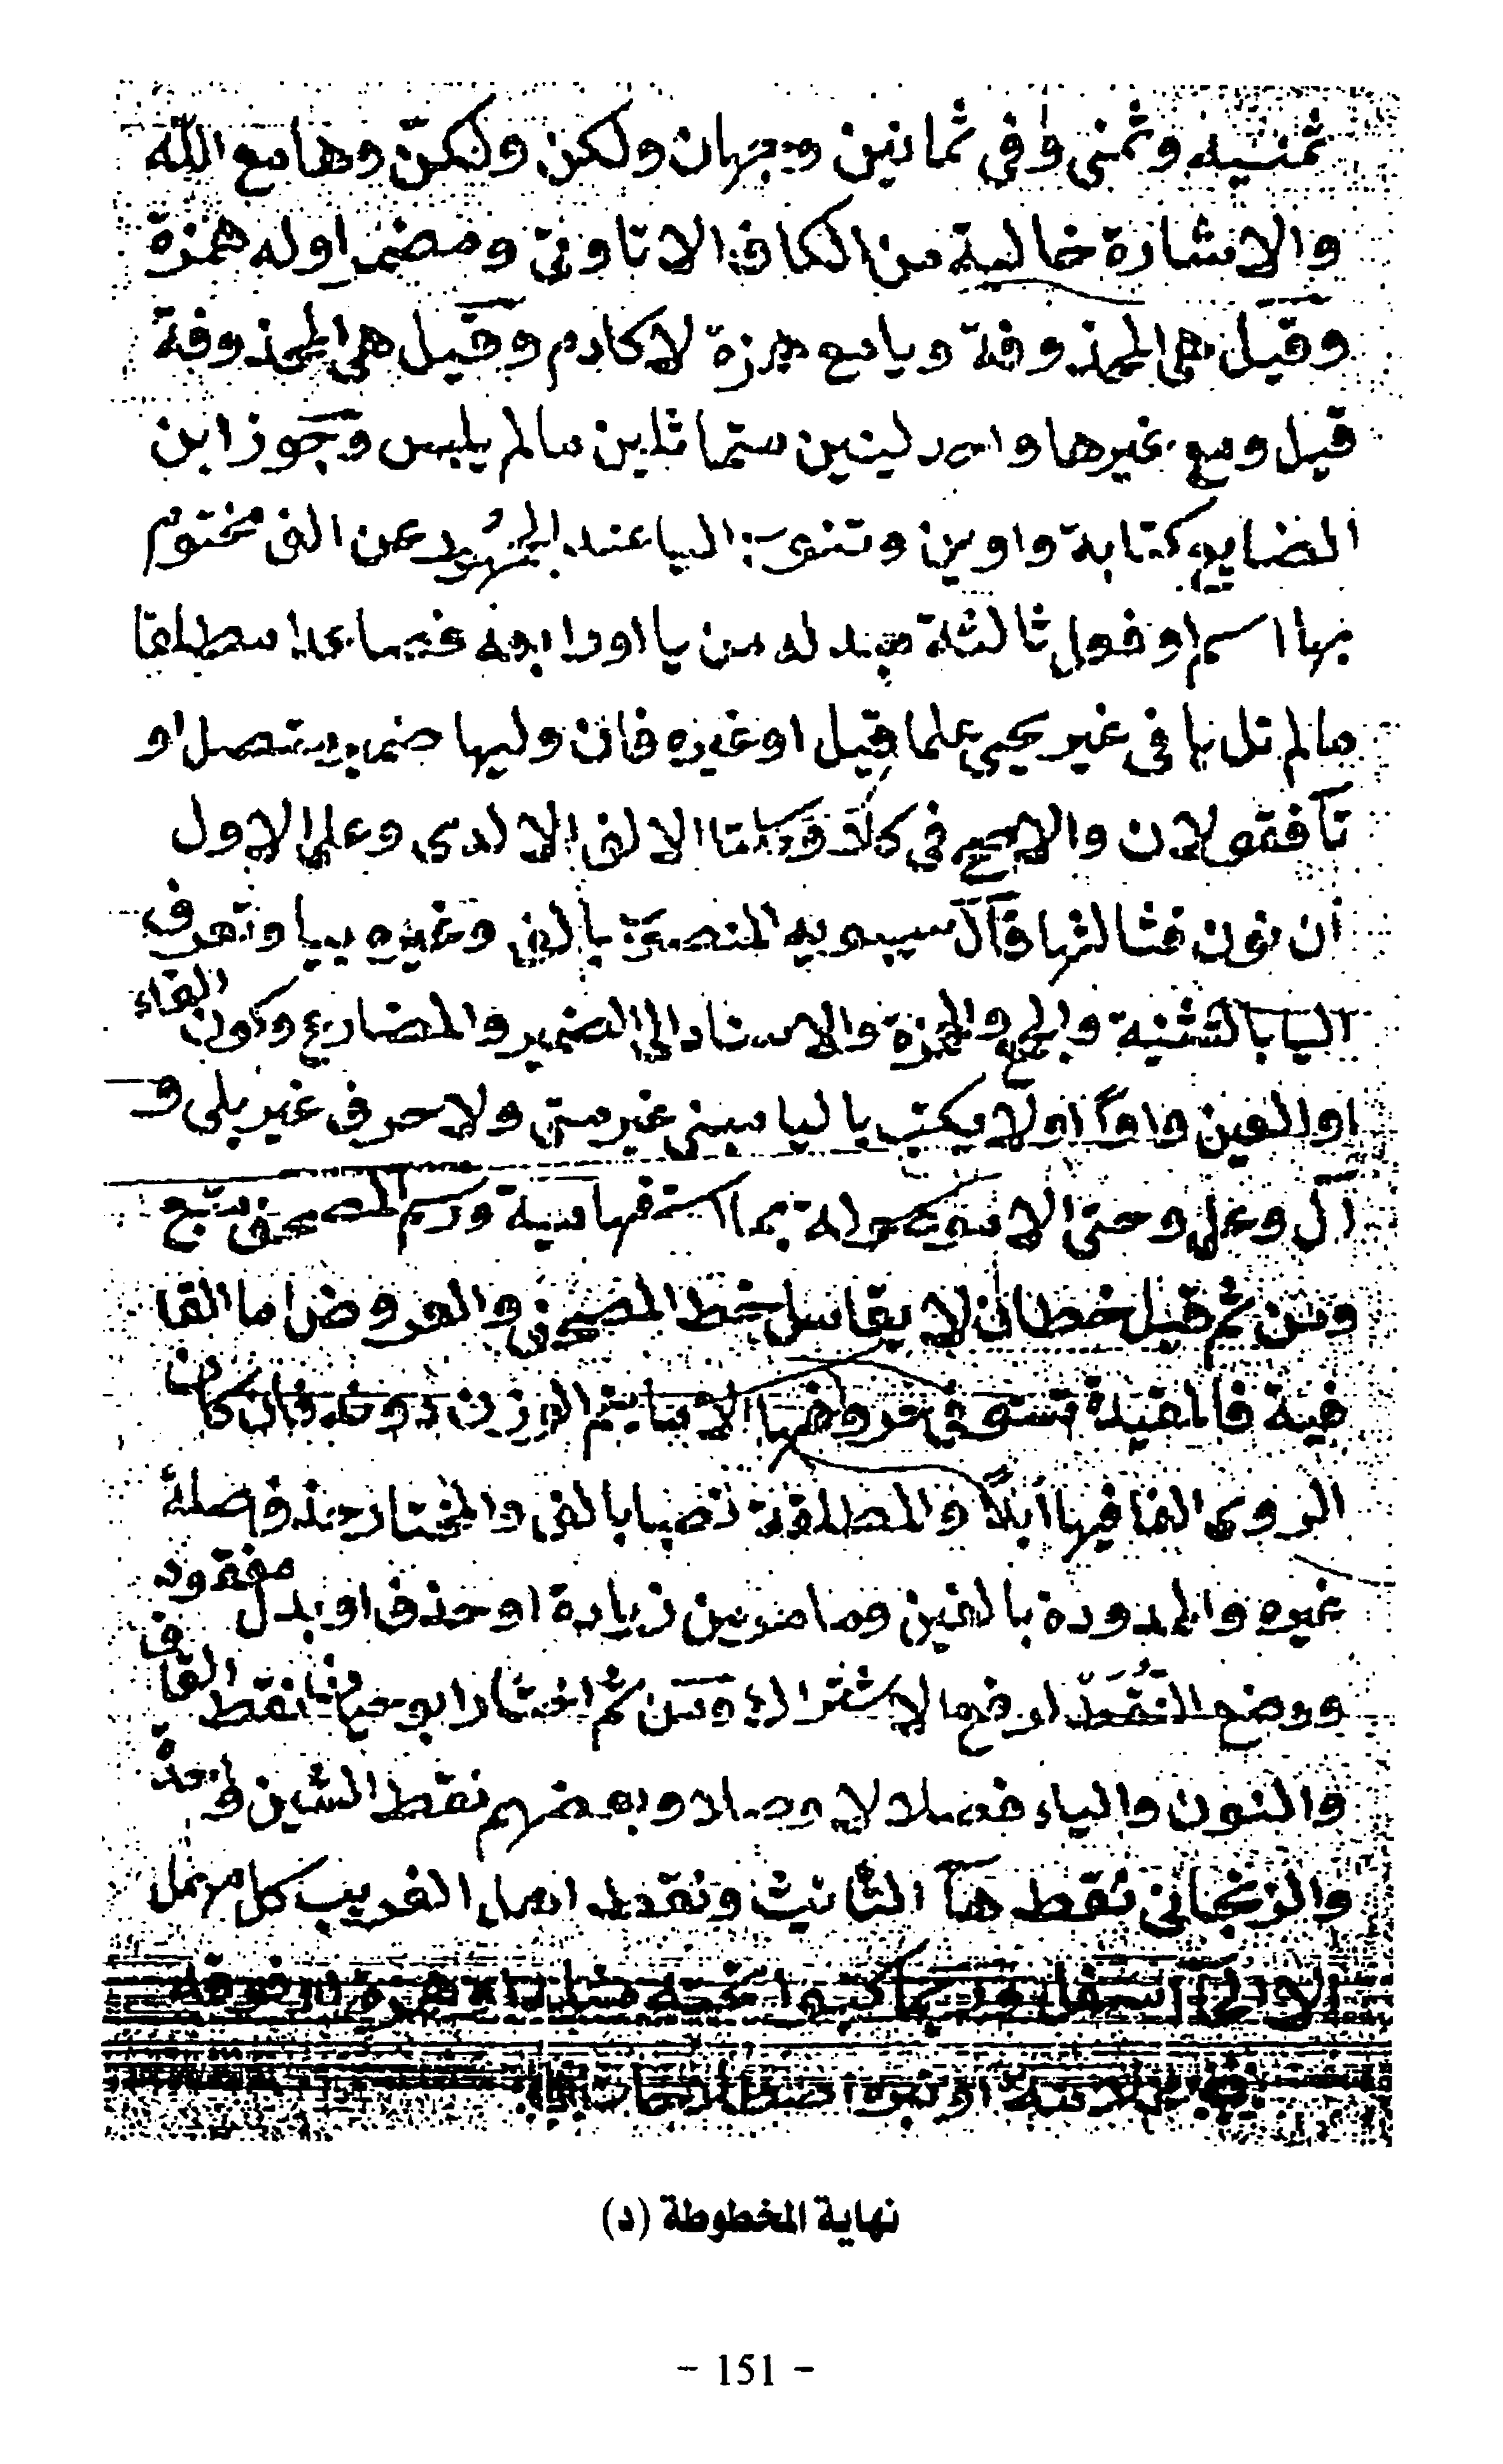 ثمنيه وثمنى وفي ثمانين وجهان ولكن ولكنّ وها مع الله
والاشارة خالية من الكاف الاتاوتى ومضمر اوله همزة
وقيل هي المحذوفة ويا مع همزة لاكادم وقيل هي المحذوفة
قيل ومع غيرها واحد لينين متماثلين مالم يلبس وجوز ابن
الضايع كتابة واوين وتنوب اليا عند الجمهور عن الف مختوم
بها اسم او فعل ثالثة مبدلة من يا او رابعة فصاعدا مطلقا
مالم تل يا في غير يحيى علما قيل او غيره فان وليها ضمير متصل او
تا فقولان والاصح في كلا وكلتا الالف الا لدى وعلى الاول
ان نون فثالثها قال سيبويه المنصوب بالف وغيره بيا وتعرف
اليا بالتثنية والجمع والمرة والاسناد الى الضمير والمضارع وكون الفاء
او العين واوا ولا يكتب باليا مبني غير متى ولا حرف غير بلى و
الى وعلى وحتى الا موصولة بما استفهامية ورسم المصحف متبع
ومن ثم قيل خطان لا يقاسان خط المصحف والعروض اما القا
فية فالمقيدة تستوفي حروفها الا ما يتم الوزن دونه فان كان
الروي الفا فيها والمطلقة نصبا بالف والمختار حذف صلة
غيره والممدودة بالفين وما مر بين زيادة او حذف او بدل مفقود
ووضع النقط لرفع الاشتراك ومن ثم اختار ابو حيان نقط القاف
والنون والياء فصلا لا وصلا وبعضهم نقط الشين واحدة
والزنجاني نقط هآ التانيث ونقط اهل الغريب كل مهمل
الا الحا اسفل
نهاية المخطوطة (د)
- 151 -